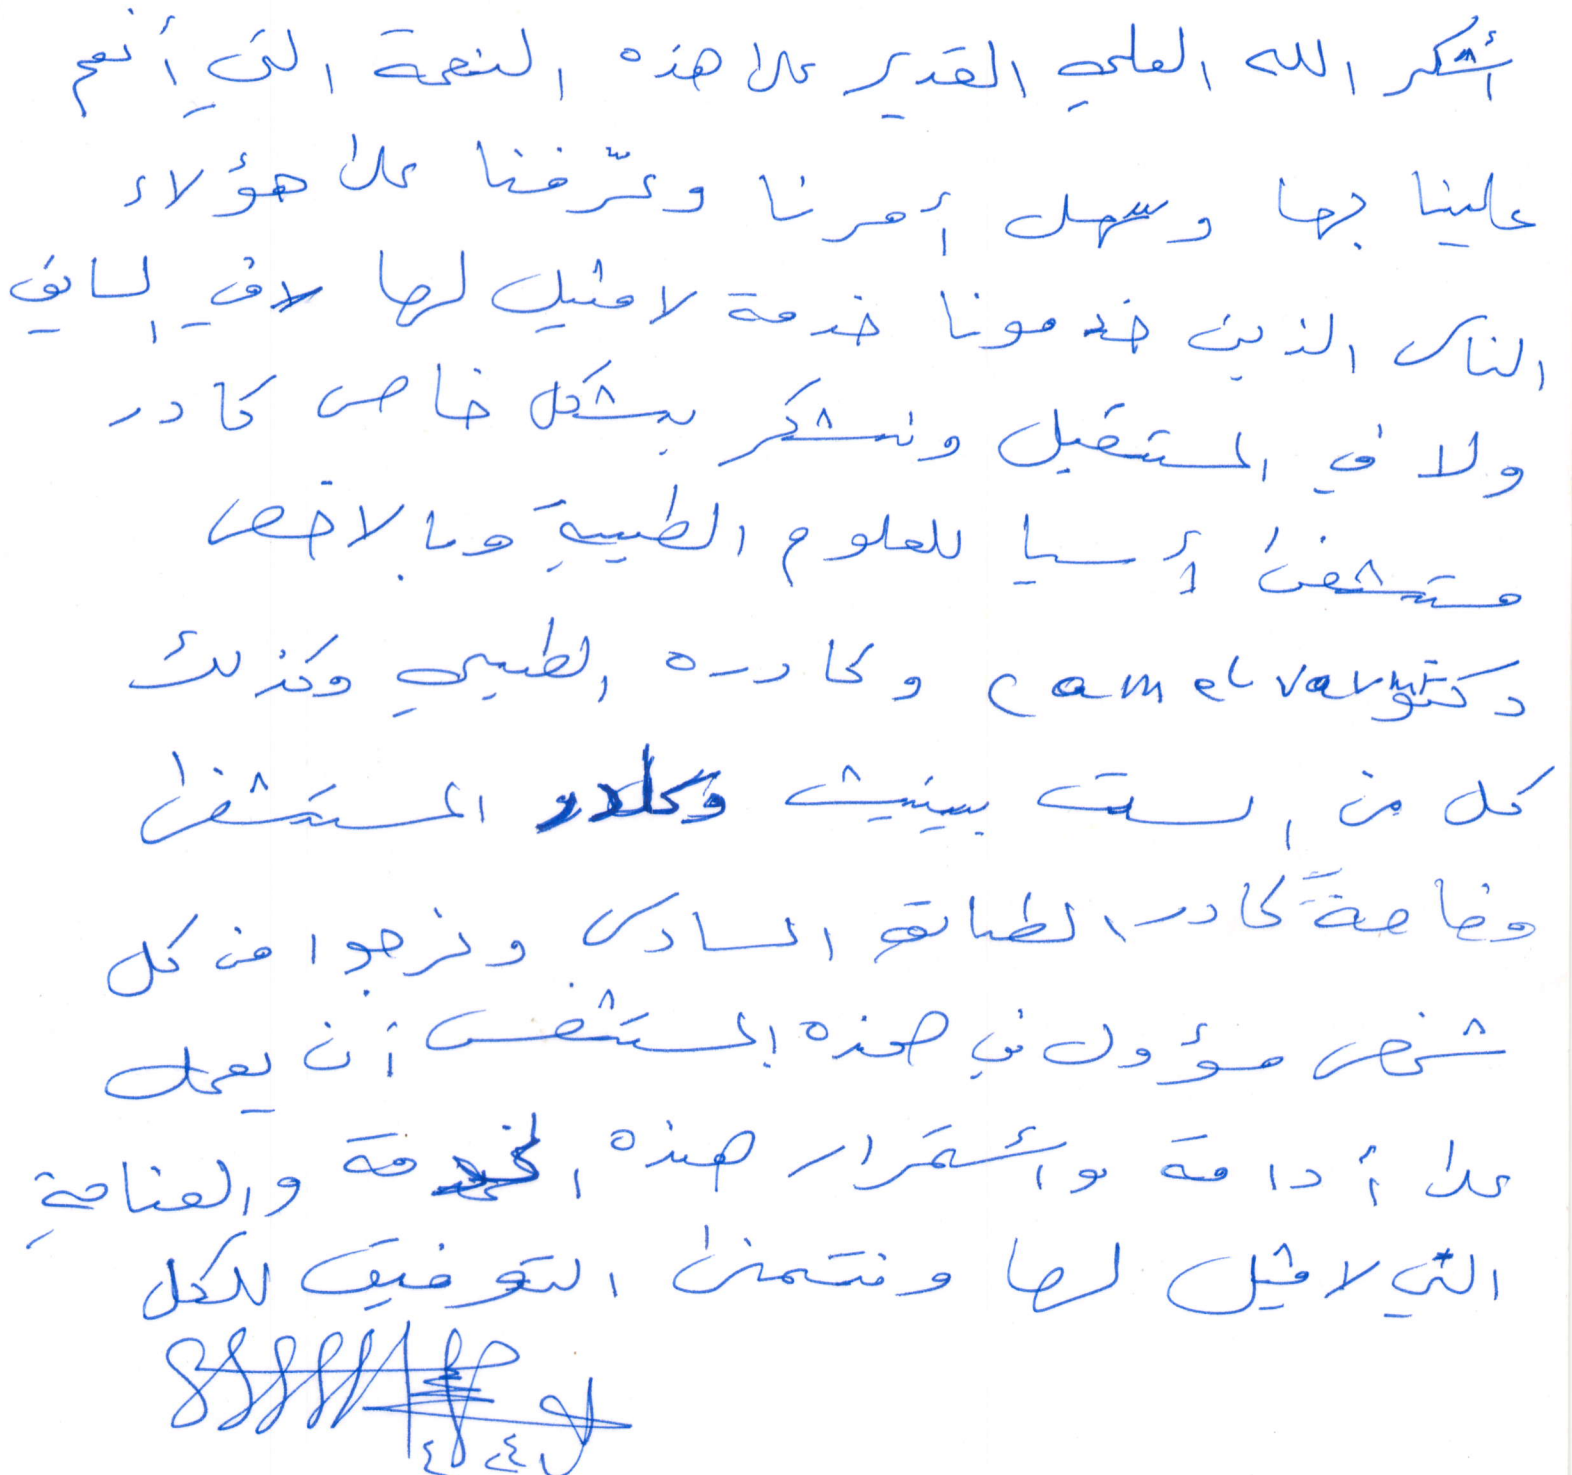 أشكر الله العلي القدير علا هذه النعمة التي أنعم
علينا بها وسهل أمرنا وعرّفنا علا هؤلاء
الناس الذين خدمونا خدمة لا مثيل لها لا في السابق
ولا في المستقبل ونشكر بشكل خاص كادر
مستشفا أسيا للعلوم الطبية وبالاخص
دكتور وكادره الطبي وكذلك
كل من الست بينيش وكادر المستشفا
وخاصةً كادر الطابق السادس ونرجوا من كل
شخص مسؤول في هذه المستشفى أن يعمل
علا أدامة وأستمرار هذه الخدمة والعناية
التي لا مثيل لها ونتمنا التوفيق للكل